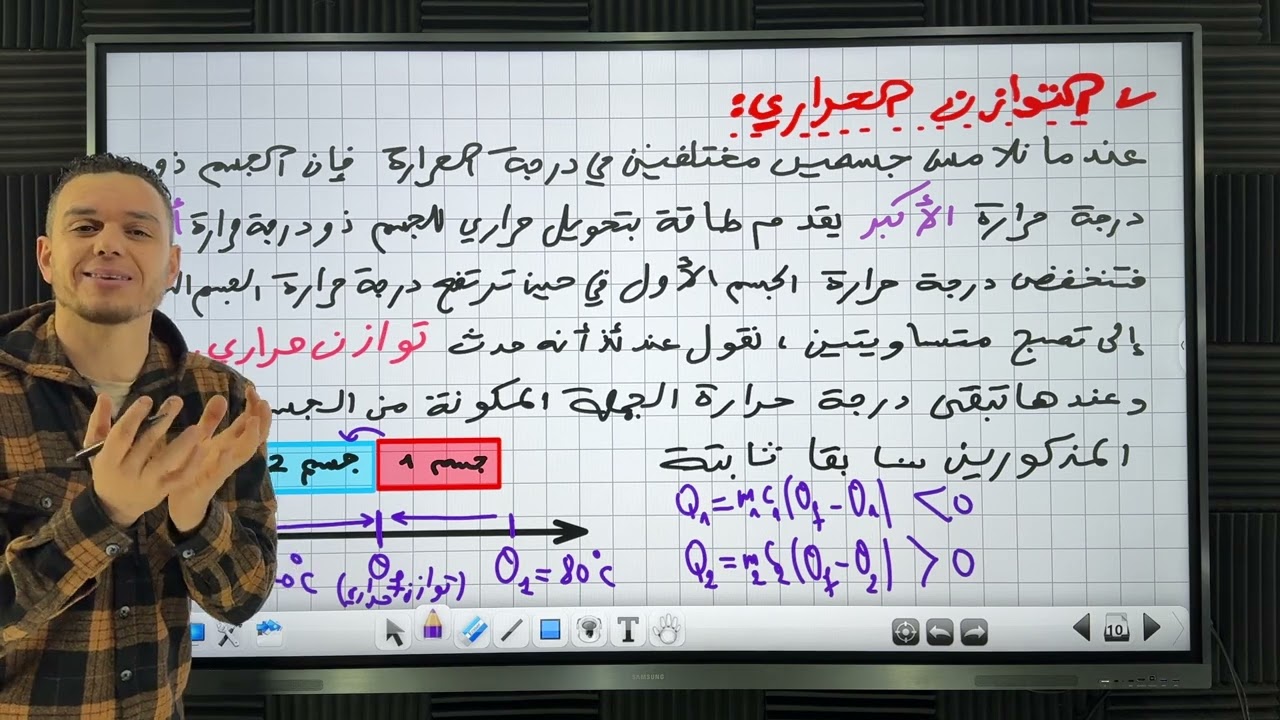 ✓ التوازن الحراري:
عندما تلامس جسمين مختلفين في درجة الحرارة فإن الجسم ذو
درجة حرارة الأكبر يقدم طاقة بتحويل حراري للجسم ذو درجة حرارة
فتنخفض درجة حرارة الجسم الأول في حين ترتفع درجة حرارة الجسم
إلى تصبح متساويتين ، نقول عندئذ أنه حدث توازن حراري.
وعندها تبقى درجة حرارة الجملة المكونة من
المذكورين سابقا ثابتة
جسم 1
جسم 2
Q₁=m₁c₁(θf-θ₁) <0
Q₂=m₂c₂(θf-θ₂) >0
θ₁=80°C
θf
(توازن حراري)
0°C
T
10
SAMSUNG